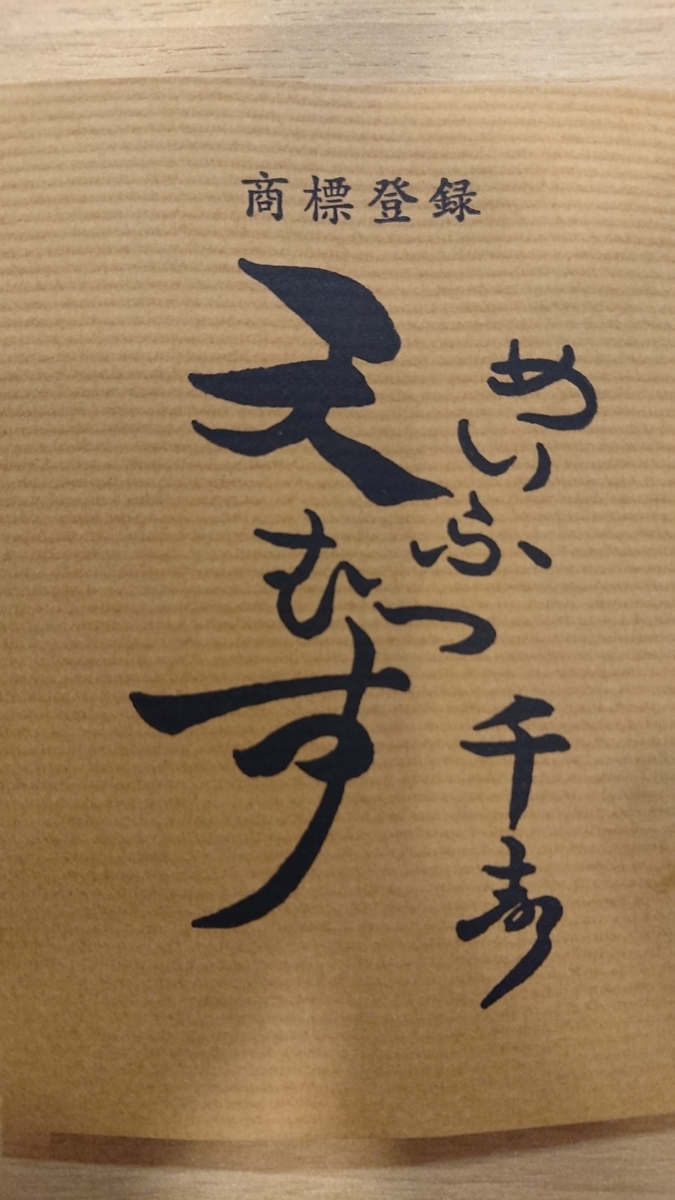 商標登録
めいふつ
千寿
天むす